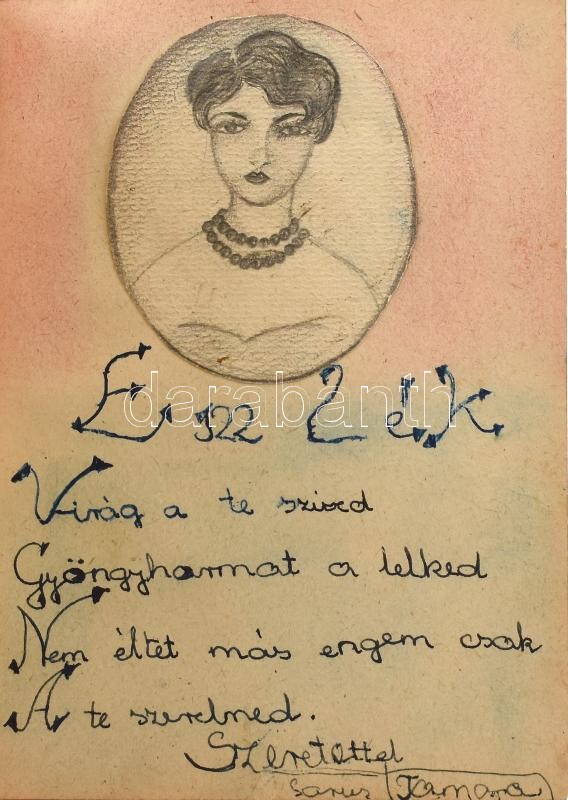 darabanth
Virág a te szived
Gyöngyharmat a lelked
Nem éltet más engem csak
A te szerelmed.
Szeretettel
Tamara